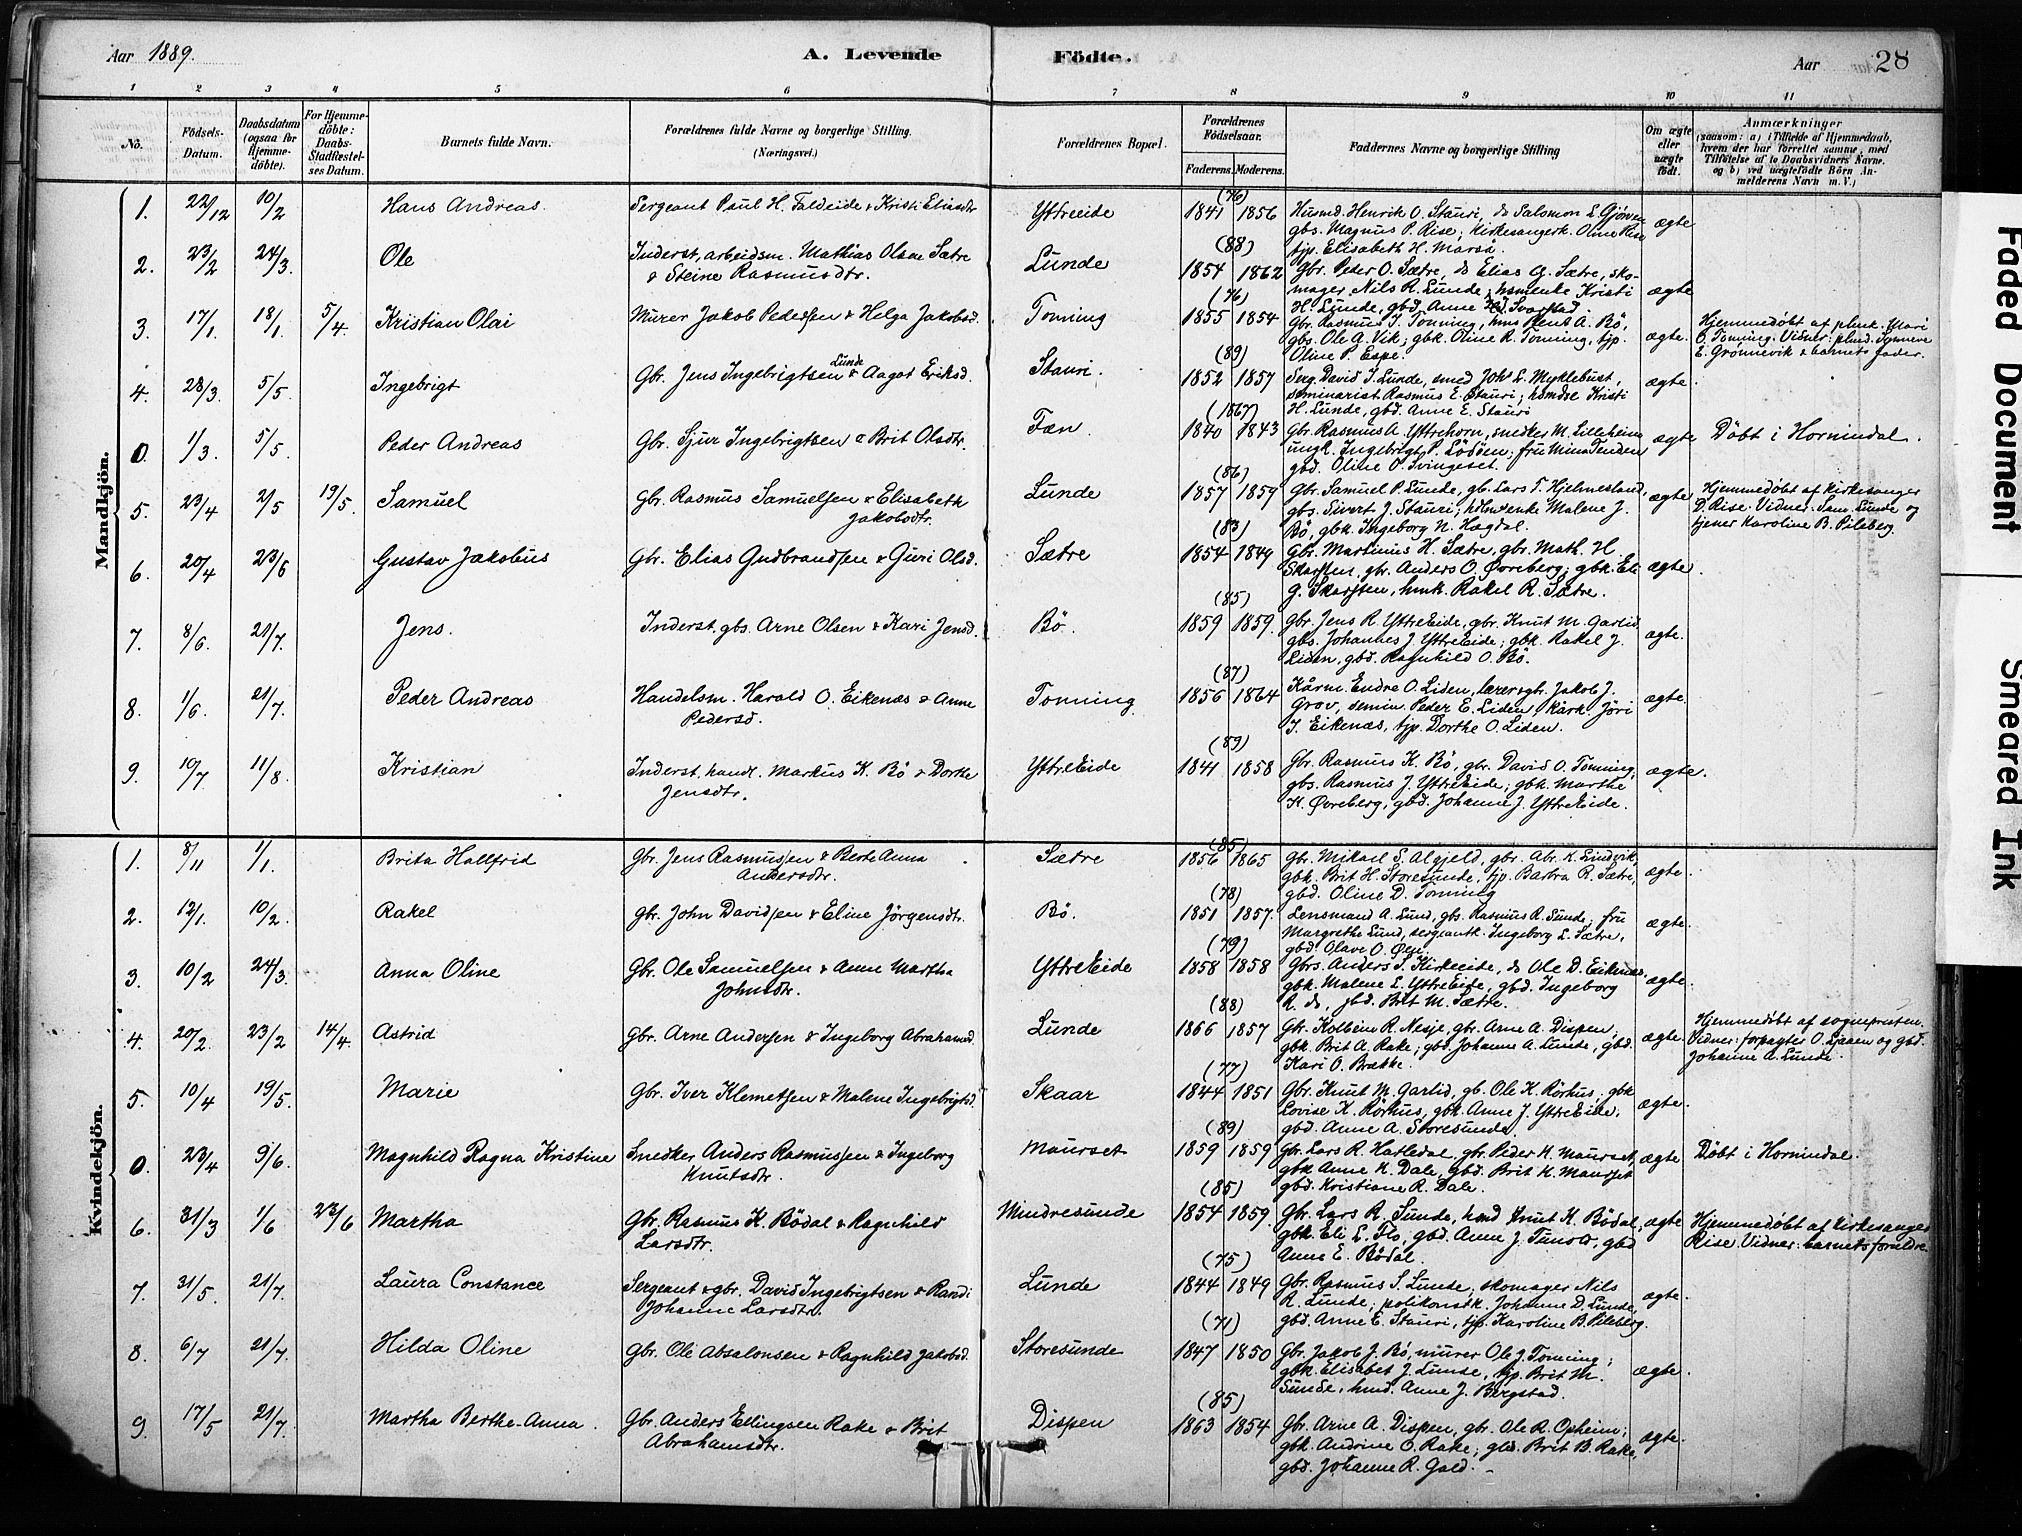 Aar 1889.
A. Levende
Födte.
Aar
28
1 2 3 4 5 6 7 8 9 10 11
No.
Födsels-Datum.
Daabsdatum (ogsaa for Hjemmedöbte).
For Hjemmedöbte: Daabs-Stadfæstelses Datum.
Barnets fulde Navn.
Forældrenes fulde Navne og borgerlige Stilling.
(Næringsvei.)
Forældrenes Bopæl.
Forældrenes Födselsaar.
Faderens. Moderens.
Faddernes Navne og borgerlige Stilling
Om ægte eller uægte födt.
Anmærkninger
(saasom: a) i Tilfælde af Hjemmedaab,
hvem der har forrettet samme, med
Tilföielse af to Daabsvidners Navne.
og b) ved uægtefödte Börn Anmelderens Navn m. V.)
Mandkjön.
1. 22/12 10/2 Hans Andreas. Sergeant Paul H. Faldeide & Kristi Eliasdtr Yttreeide (76) 1841 1856 Husmd. Henrik O. Stauri, do Salomon L. Gjörven
gbs. Magnus P. Rise; kirkesangerk. Oline Rise
tjp. Elisabeth H. Marså. ægte
2. 23/2 24/3. Ole Inderst, arbeidsm. Mathias Olsen Sætre
& Steine Rasmusdtr. Lunde (88) 1854 1862 Gbr. Peder O. Sætre, do Elias G. Sætre, sko-
mager Nils R. Lunde; hsmenke Kristi
H. Lunde, gbd. Anne Svarstad ægte
3. 17/1. 18/1. 5/4. Kristian Olai Murer Jakob Pedersen & Helga Jakobsd. Tonning (76) 1855 1854 Gbr. Rasmus J. Tonning, hms Rens A. Bö,
gbs. Ole A. Vik; gbk. Oline R. Tonning, tjp.
Oline P. Espe. ægte. Hjemmedøbt af plmk. Mari
O. Tonning. Vidner: Synneve
E. Grönnevik & barnets fader.
4. 28/3. 5/5. Ingebrigt Gbr. Jens Ingebrigtsen Lunde & Aagot Eriksd. Stauri. (89) 1852 1857 Serg. David I. Lunde, smed Joh. L. Myklebust,
seminarist Rasmus E. Stauri; Kristi
H. Lunde, gbd. Anne E. Stauri ægte.
0. 1/3. 5/5. Peder Andreas Gbr. Sjur Ingebrigtsen & Brit Olsdtr. Fæn (1867) 1840 1843 Gbr. Rasmus A. Yttrehorn, snedker M. Lilleheim
ungk. Ingebrigt P. Lödöen; fru Mina Tenden
gbd. Oline O. Svingeset. ægte Döbt i Hornindal.
5. 23/4 2/5 19/5. Samuel Gbr. Rasmus Samuelsen & Elisabeth
Jakobsdtr. Lunde (86) 1857 1859 Gbr. Samuel P. Lunde, gb. Lars T. Hjelmesland,
gbs. Sivert J. Stauri; Malene J.
Bö, gbk. Ingeborg N. Hægdal. ægte Hjemmedöbt af kirkesanger
D. Rise. Vidner: Sam. Lunde og
tjener Karoline B. Pileberg.
6. 20/4 23/6 Gustav Jakobus Gbr. Elias Gudbrandsen & Guri Olsd. Sætre (83) 1854 1849 Gbr. Martinius H. Sætre, gbr. Math. H.
Skarsten, gbr. Anders O. Övreberg; gbk. Eli
G. Skarsten, hmk. Rakel R. Sætre. ægte.
7. 8/6. 21/7. Jens. Inderst, gbs. Arne Olsen & Kari Jensd. Bö. (85) 1859 1859. Gbr. Jens R. YttreEide, gbr. Knut M. Garlid
gbs. Johannes J. YttreEide; gbk. Rakel J.
Liden, gbd. Ragnhild O. Bö. ægte.
8. 1/6. 21/7. Peder Andreas Handelsm. Harald O. Eikenæs & Anne
Pedersd. Tonning (87) 1856 1864 Kårm. Endre O. Liden, lærer & gbr. Jakob J.
Grov, semin. Peder E. Liden, kårk. Jöri
I. Eikenæs, tjp. Dorthe O. Liden. ægte.
9. 10/7 11/8. Kristian Inderst, handl. Markus K. Bö & Dorthe
Jensdtr. YttreEide (89) 1841 1858 Gbr. Rasmus K. Bö, gbr. David O. Tonning,
gbs. Rasmus J. YttreEide; gbk. Marthe
K. Övreberg, gbd. Johanne J. YttreEide. ægte.
Kvindekjön.
1. 8/11 1/1. Brita Hallfrid Gbr. Jens Rasmussen & Berte Anna
Andersdtr. Sætre (85) 1856 1865 Gbr. Mikael S. Algjeld, gbr. Abr. K. Lindvik,
gbk. Brit H. Storesunde, tjp. Barbra R. Sætre,
gbd. Oline D. Tonning ægte.
2. 12/1. 10/2. Rakel Gbr. John Davidsen & Eline Jörgensdtr. Bö. (78) 1851 1857. Lensmand A. Lund, gbs. Rasmus R. Sunde; fru
Margrethe Lund, sergeantk. Ingeborg L. Sætre,
gbd. Olave O. Öen. ægte.
3. 10/2 24/3. Anna Oline Gbr. Ole Samuelsen & Anne Martha
Johnsdtr. YttreEide (79) 1858 1858 Gbrs. Anders S. Kirkeeide, do Ole D. Eikenæs,
gbk. Malene L. YttreEide, gbd. Ingeborg
R. do, gbd. Brit M. Sætre. ægte.
4. 20/2. 23/2 14/4. Astrid Gbr. Arne Andersen & Ingeborg Abrahamsd. Lunde (88) 1866 1857 Gbr. Kolbein R. Nesje, gbr. Arne A. Dispen;
gbk. Brit A. Rake; gbd. Johanne A. Lunde, gbd.
Kari O. Brække. ægte Hjemmedöbt af sognepresten.
Vidner: forpagter O. Ljaaen og gbd.
Johanne A. Lunde.
5. 10/4 19/5. Marie Gbr. Iver Klemetsen & Malene Ingebrigtsd. Skaar (77) 1844 1851 Gbr. Knut M. Garlid, gb. Ole K. Rörhus; gbk
Lovise K. Rörhus, gbk. Anne J. YttreEide,
gbd. Anne A. Storesunde. ægte.
0. 23/4 9/6. Magnhild Ragna Kristine Snedker Anders Rasmussen & Ingeborg
Knutsdtr. Maurset (89) 1859 1859 Gbr. Lars R. Harledal, gbr. Peder K. Maurset,
gbk. Anne K. Dale, gbd. Brit K. Maurset
gbd. Kristiane R. Dale. ægte Döbt i Hornindal.
6. 31/3 1/6 23/6 Martha Gbr. Rasmus K. Bödal & Ragnhild
Larsdtr. Mindresunde (85) 1854 1859. Gbr. Lars R. Sunde, hsmd Knut K. Bödal,
gbk. Eli L. Flo, gbd. Anne J. Tunold, gbd
Anne E. Bödal. ægte Hjemmedöbt af kirkesanger
Rise. Vidner: barnets foreldre.
7. 31/5. 21/7. Laura Constance Sergeant & gbr. David Ingebrigtsen & Randi
Johanne Larsdtr. Lunde (75) 1844 1849 Gbr. Rasmus S. Lunde, skomager Nils
R. Lunde; politikonstk. Johanne D. Lunde,
gbd. Anne E. Stauri, tjp. Karoline B. Pileberg. ægte.
8. 6/7 21/7. Hilda Oline Gbr. Ole Absalonsen & Ragnhild Jakobsd. Storesunde (71) 1847 1850 Gbr. Jakob J. Bö, murer Ole J. Tonning;
gbk. Elisabet J. Lunde, tjp. Brit M.
Sunde, hmd. Anne J. Bergstad. ægte.
9. 17/5 21/7. Martha Berthe-Anna. Gbr. Anders Ellingsen Rake & Brit
Abrahamsdtr. Dispen (85) 1863 1854 Gbr. Arne A. Dispen, gbr. Ole R. Opheim;
gbk. Andrine O. Rake; gbd. Brit B. Rake,
gbd. Johanne R. Gald. ægte.
Faded Document
Smeared Ink